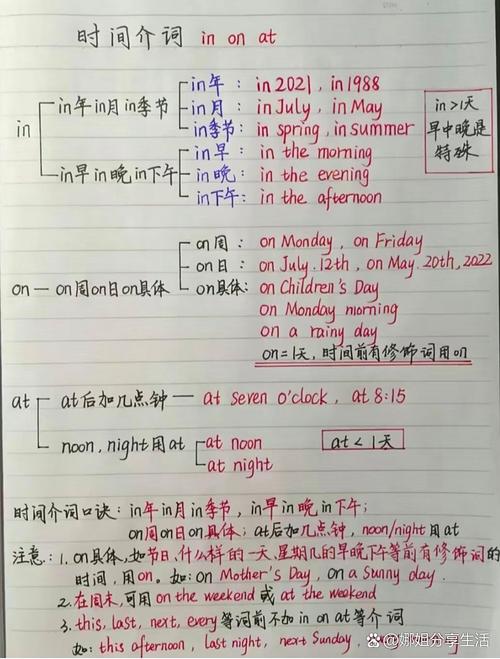 时间介词 in on at
in年: in 2021, in 1988
in年in月in季节
in月: in July, in May
in季节: in spring, in summer
in
in早: in the morning
in早in晚in下午
in晚: in the evening
in下午: in the afternoon
in>1天
早中晚是
特殊
on周: on Monday, on Friday
on日: on July.12th, on May.20th,2022
on — on周on日on具体
on具体: on Children's Day
on Monday morning
on a rainy day
on=1天,时间前有修饰词用on
at
at后加几点钟 — at seven o'clock, at 8:15
noon, night用at
at noon
at night
at<1天
时间介词口诀: in年in月in季节, in早in晚in下午;
on周on日on具体; at后加几点钟, noon/night用at
注意: 1. on具体,如节日,什么样的一天,星期几的早晚下午等前有修饰词的
时间,用on。如: on Mother's Day, on a sunny day.
2. 在周末,可用on the weekend或at the weekend
3. this, last, next, every等词前不加in on at等介词
如: this afternoon, last night, next Sunday
@娜姐分享生活